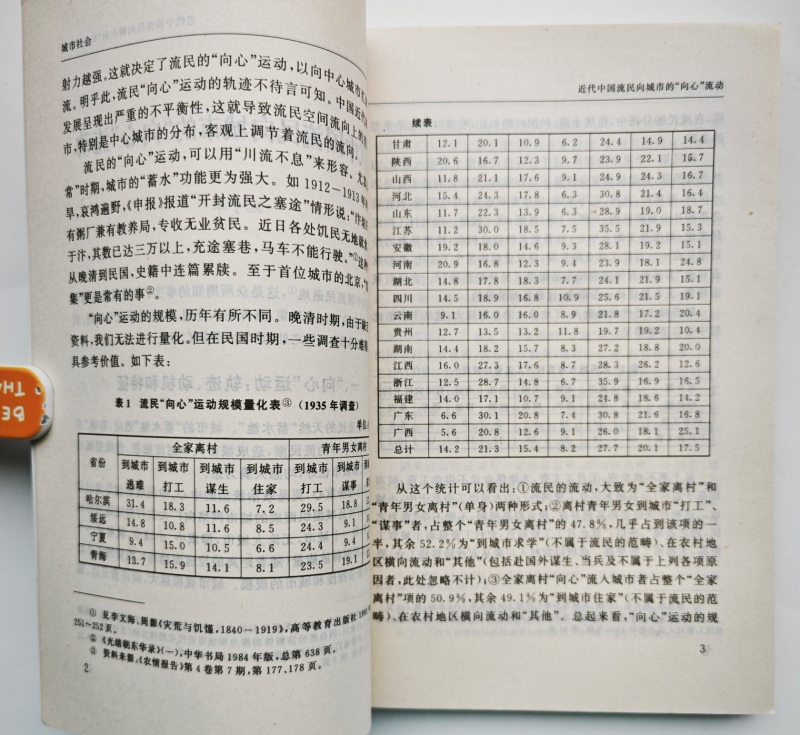 城市社会
射力越强。这就决定了流民的“向心”运动，以向中心城市
流。明乎此，流民“向心”运动的轨迹不待言可知。中国近代
发展呈现出严重的不平衡性，这就导致流民空间流向上的
市，特别是中心城市的分布，客观上调节着流民的流向。
流民的“向心”运动，可以用“川流不息”来形容，尤其
常”时期，城市的“蓄水”功能更为强大。如1912—1913年
旱，哀鸿遍野，《申报》报道“开封流民之塞途”情形说：“汴
有粥厂兼有教养局，专收无业贫民。近日各处饥民无地就
于汴，其数已达三万以上，充途塞巷，马车不能行驶。”①这种
从晚清到民国，史籍中连篇累牍。至于首位城市的北京，
集”更是常有的事②。
“向心”运动的规模，历年有所不同。晚清时期，由于缺乏
资料，我们无法进行量化。但在民国时期，一些调查十分难
具参考价值。如下表：
表1 流民“向心”运动规模量化表③（1935年调查）
单位
省份 全家离村 青年男女离村
到城市逃难 到城市打工 到城市谋生 到城市住家 到城市打工 到城市谋事
哈尔滨 31.4 18.3 11.6 7.2 29.5 18.8
绥远 14.8 10.8 11.6 8.5 24.3 9.1
宁夏 9.4 15.0 10.5 6.6 24.4 9.4
青海 13.7 15.9 14.1 8.1 23.5 19.1
① 见李文海、周源《灾荒与饥馑，1840—1919》，高等教育出版社
251～252页。
② 《光绪朝东华录》（一），中华书局1984年版，总第638页。
③ 资料来源：《农情报告》第4卷第7期，第177、178页。
2
近代中国流民向城市的“向心”流动
续表
甘肃 12.1 20.1 10.9 6.2 24.4 14.9 14.4
陕西 20.6 16.7 12.3 9.7 23.9 22.1 15.7
山西 11.8 21.1 17.6 9.1 24.9 24.3 16.7
河北 15.4 24.3 17.8 6.3 30.8 21.4 16.4
山东 11.7 22.3 13.9 6.3 28.9 19.0 18.7
江苏 11.2 30.0 18.5 7.5 35.5 21.9 15.3
安徽 19.2 18.0 14.6 9.3 28.1 19.2 15.1
河南 20.9 16.8 12.3 9.4 23.9 18.1 24.8
湖北 14.8 17.8 18.3 7.7 24.1 21.9 15.1
四川 14.5 18.9 16.8 10.9 25.6 21.5 19.1
云南 9.1 16.0 16.0 8.9 21.8 17.2 20.4
贵州 12.7 13.5 13.2 11.8 19.7 19.2 10.4
湖南 14.4 18.2 15.7 8.3 27.2 18.8 20.0
江西 16.0 27.3 17.6 8.7 28.3 26.2 12.6
浙江 12.5 28.7 14.8 6.7 35.9 16.9 16.5
福建 14.0 17.1 10.7 9.1 24.8 18.6 14.2
广东 6.6 30.1 20.8 7.4 30.8 21.6 16.8
广西 5.6 20.8 12.6 9.1 26.1 18.1 25.1
总计 14.2 21.3 15.4 8.2 27.7 20.1 17.5
从这个统计可以看出：①流民的流动，大致为“全家离村”和
“青年男女离村”（单身）两种形式；②离村青年男女到城市“打工”、
“谋事”者，占整个“青年男女离村”的47.8%，几乎占到该项的一
半，其余52.2%为“到城市求学”（不属于流民的范畴）、在农村地
区横向流动和“其他”（包括赴国外谋生、当兵及不属于上列各项原
因者，此处忽略不计）；③全家离村“向心”流入城市者占整个“全家
离村”项的50.9%，其余49.1%为“到城市住家”（不属于流民的范
畴）、在农村地区横向流动和“其他”。总起来看，“向心”运动的规
3